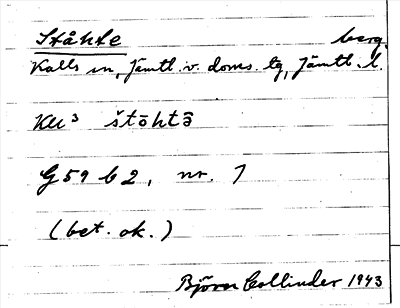 Ståhte berg.
Kalls sn, Jämtl. v. doms. tg, Jämtl. l.
KU³ štōhtō
G 59 b 2, nr. 7
(bet. ok.)
Björn Collinder 1943